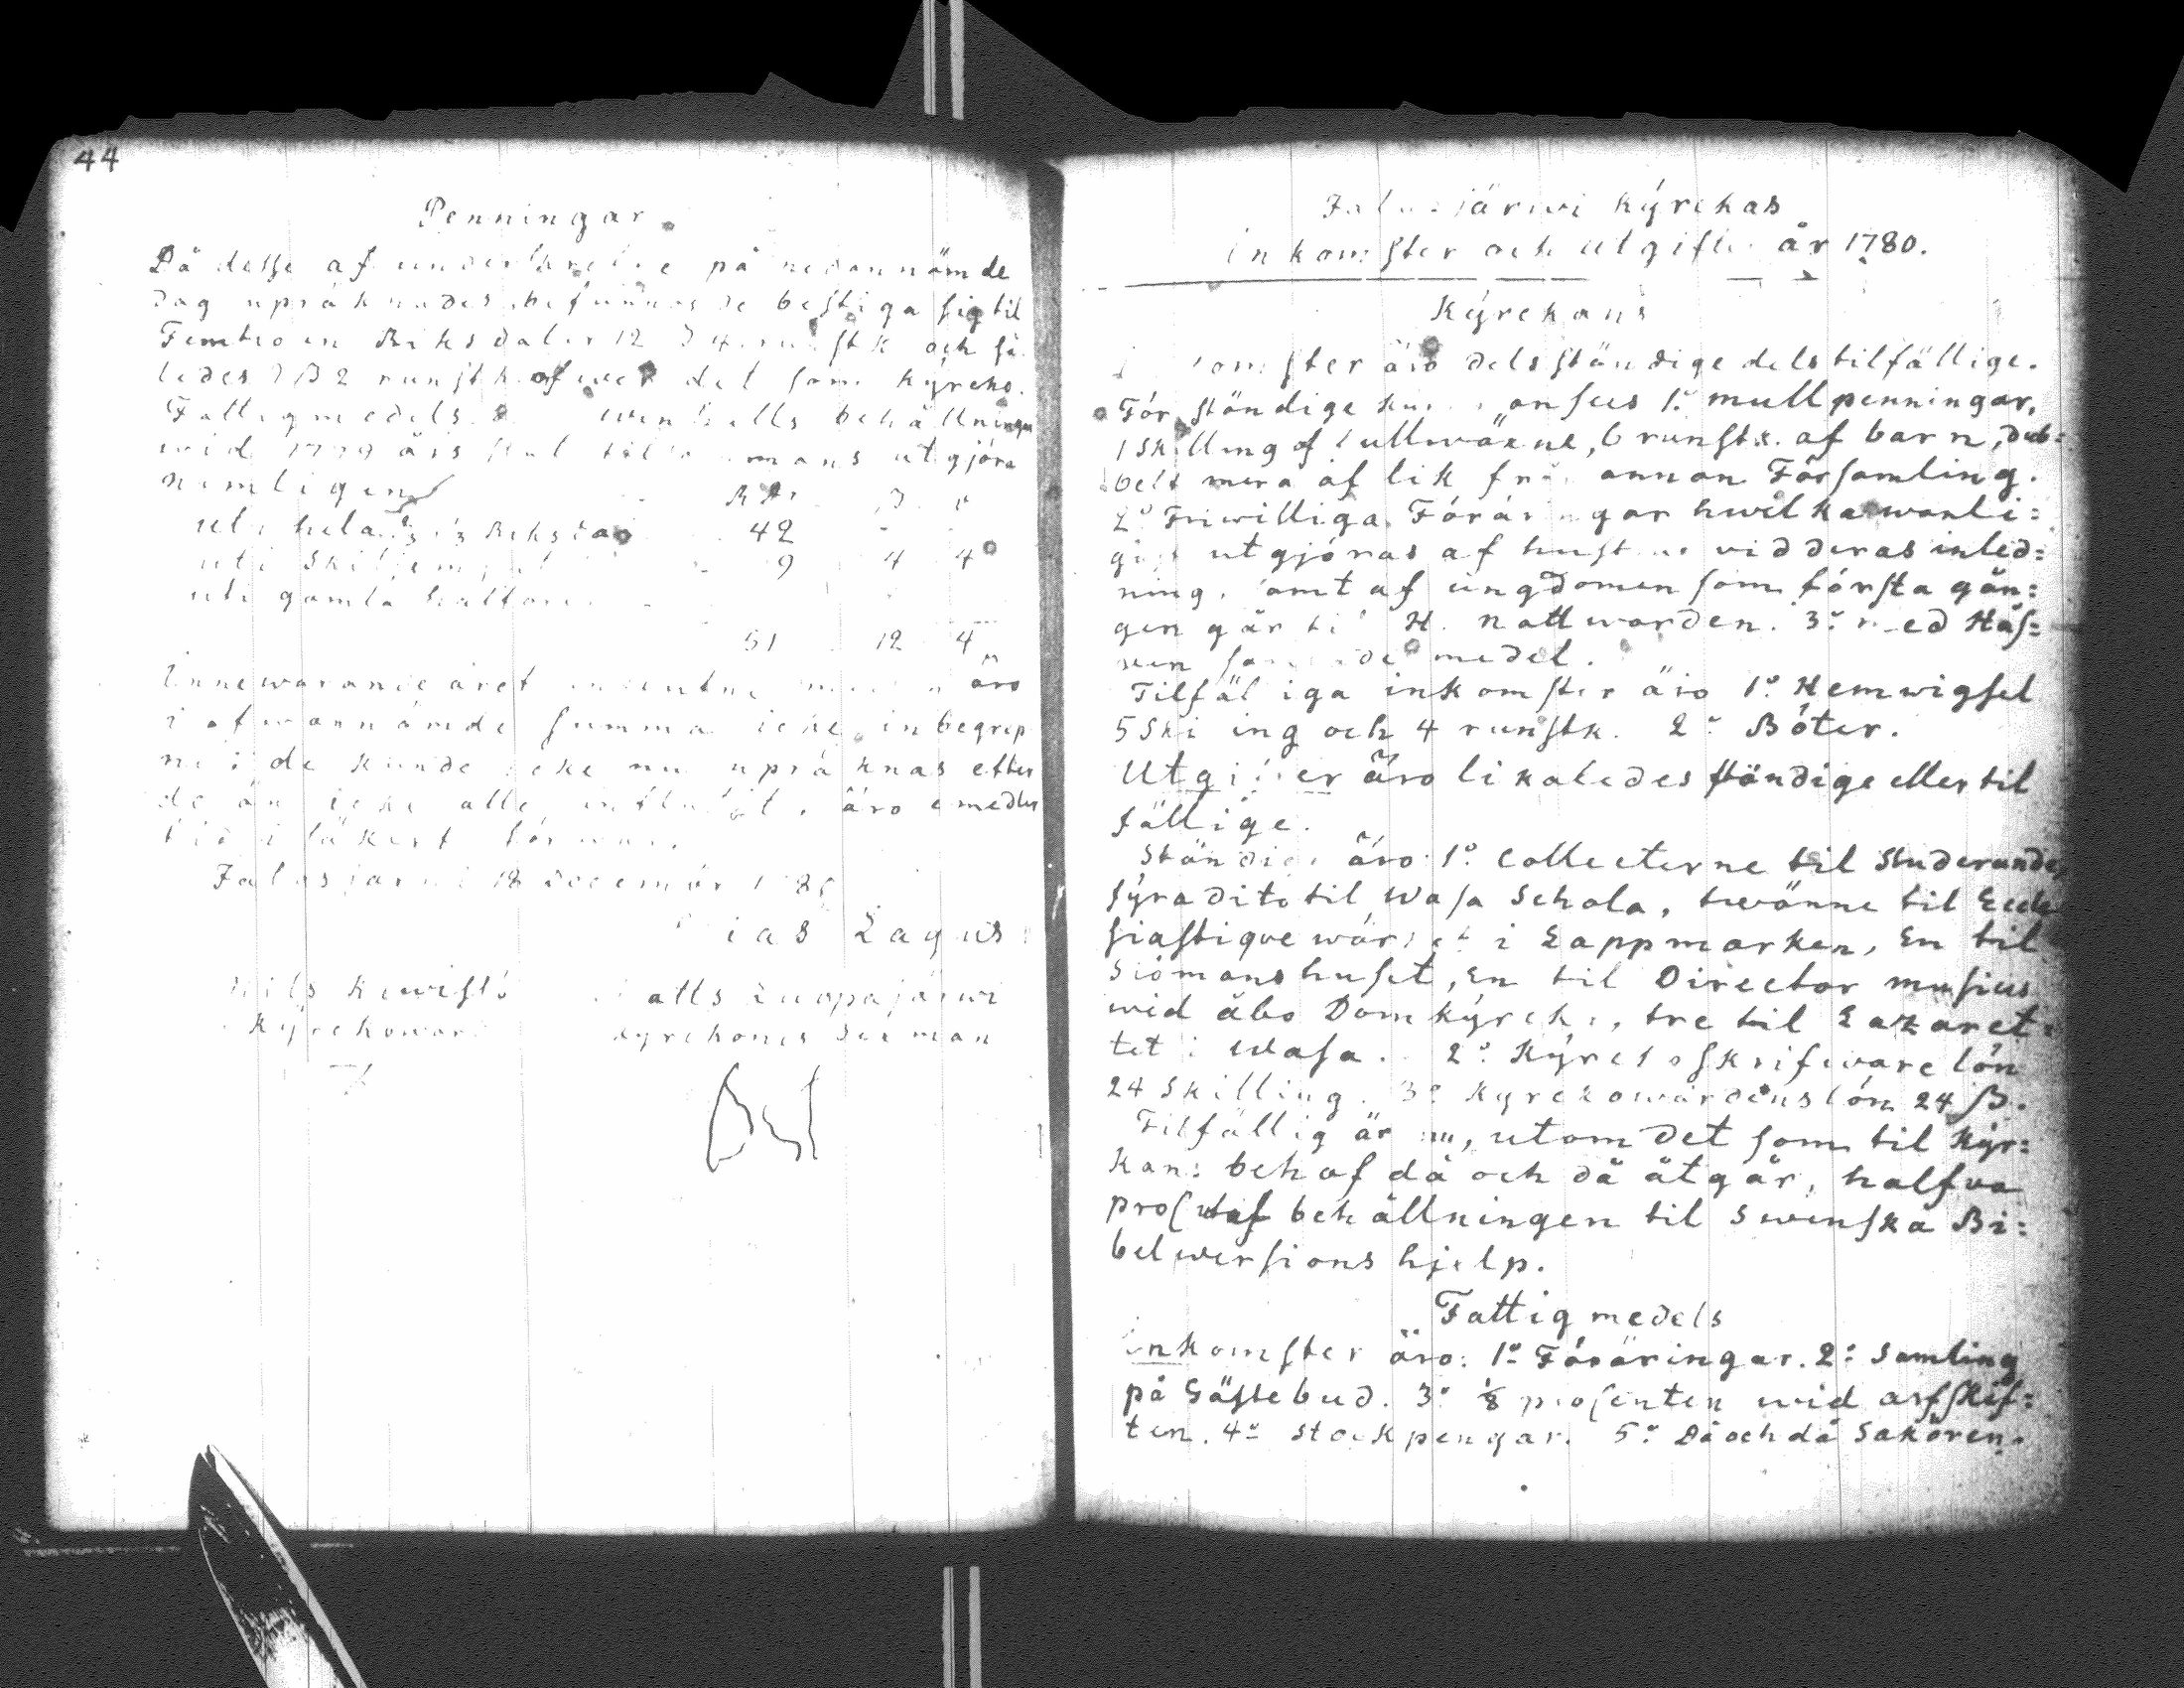 44
Penningar
Då desse af på nedannämde
dag upräknades befunnos de bestiga sig til
Femtio en Riksdaler 12 ß 4 runstk och så
ledes ß 2 runstk. öfwer det som kyrcko
Fattigmedels behållningar
wid 1779 års slut utgjöra
nemligen
uti hela Riksda 42 - -
uti 9 4 4
uti gamla - -
51 12 4
Innewarande året äro
i ofwannämde summa icke inbegrep
ne; de kunde icke nu upräknas efter
de än icke alle äro emedler
tid i säkert förwar.
Jalasjarwi 18 December
Lagus
Nils Kiwistö Matts Luopajärwi
Kyrckoward Kyrckones Sexman
Jalasjärwi Kÿrckas
inkomster och utgifter år 1780.
Kÿrckans
inkomster äro dels ständige dels tilfällige.
För ständige kunna anses 1:o mullpenningar,
1 Skilling af fullwäxne, 6 runstk. af barn, dub=
belt mera af lik från annan Församling.
2:o Friwilliga Föräringar hwilka wanli=
gast utgjöras af hustrur vid deras inled=
ning, samt af ungdomen som första gån=
gen går til H. nattwarden. 3:o med Håf=
wen samlade medel.
Tilfälliga inkomster äro 1:o Hemwigsel
5 Skilling och 4 runstk. 2:o Böter.
Utgifter äro likaledes ständige eller til
fällige.
Ständige äro: 1:o Collecterne til Studerande,
fÿra dito til Wasa Schola, twänne til Eccle
siastique wärket i Lappmarken, En til
Siömanshuset, En til Director musices
wid åbo Domkÿrcka, tre til Lazaret=
tet i Wasa. 2:o Kÿrckoskrifware lön
24 Skilling. 3:o Kyrckowärdens lön 24 ß.
Tilfällig är nu, utom det som til Kÿr=
kans behof då och då åtgår, halfva
behållningen til Swenska Bi=
belwersions hjelp.
Fattigmedels
inkomster äro: 1:o Föräringar. 2:o Samling
på Gästebud. 3:o 1/8 procenten wid arfskif=
ten. 4:o Stockpengar. 5:o Då och då Sakören.